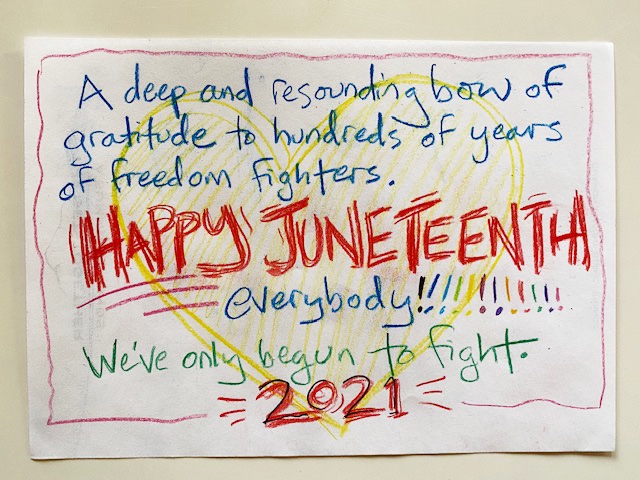 A deep and resounding bow of
gratitude to hundreds of years
of freedom fighters.
HAPPY JUNETEENTH
everybody!!!!!!!!!!!
We've only begun to fight.
2021